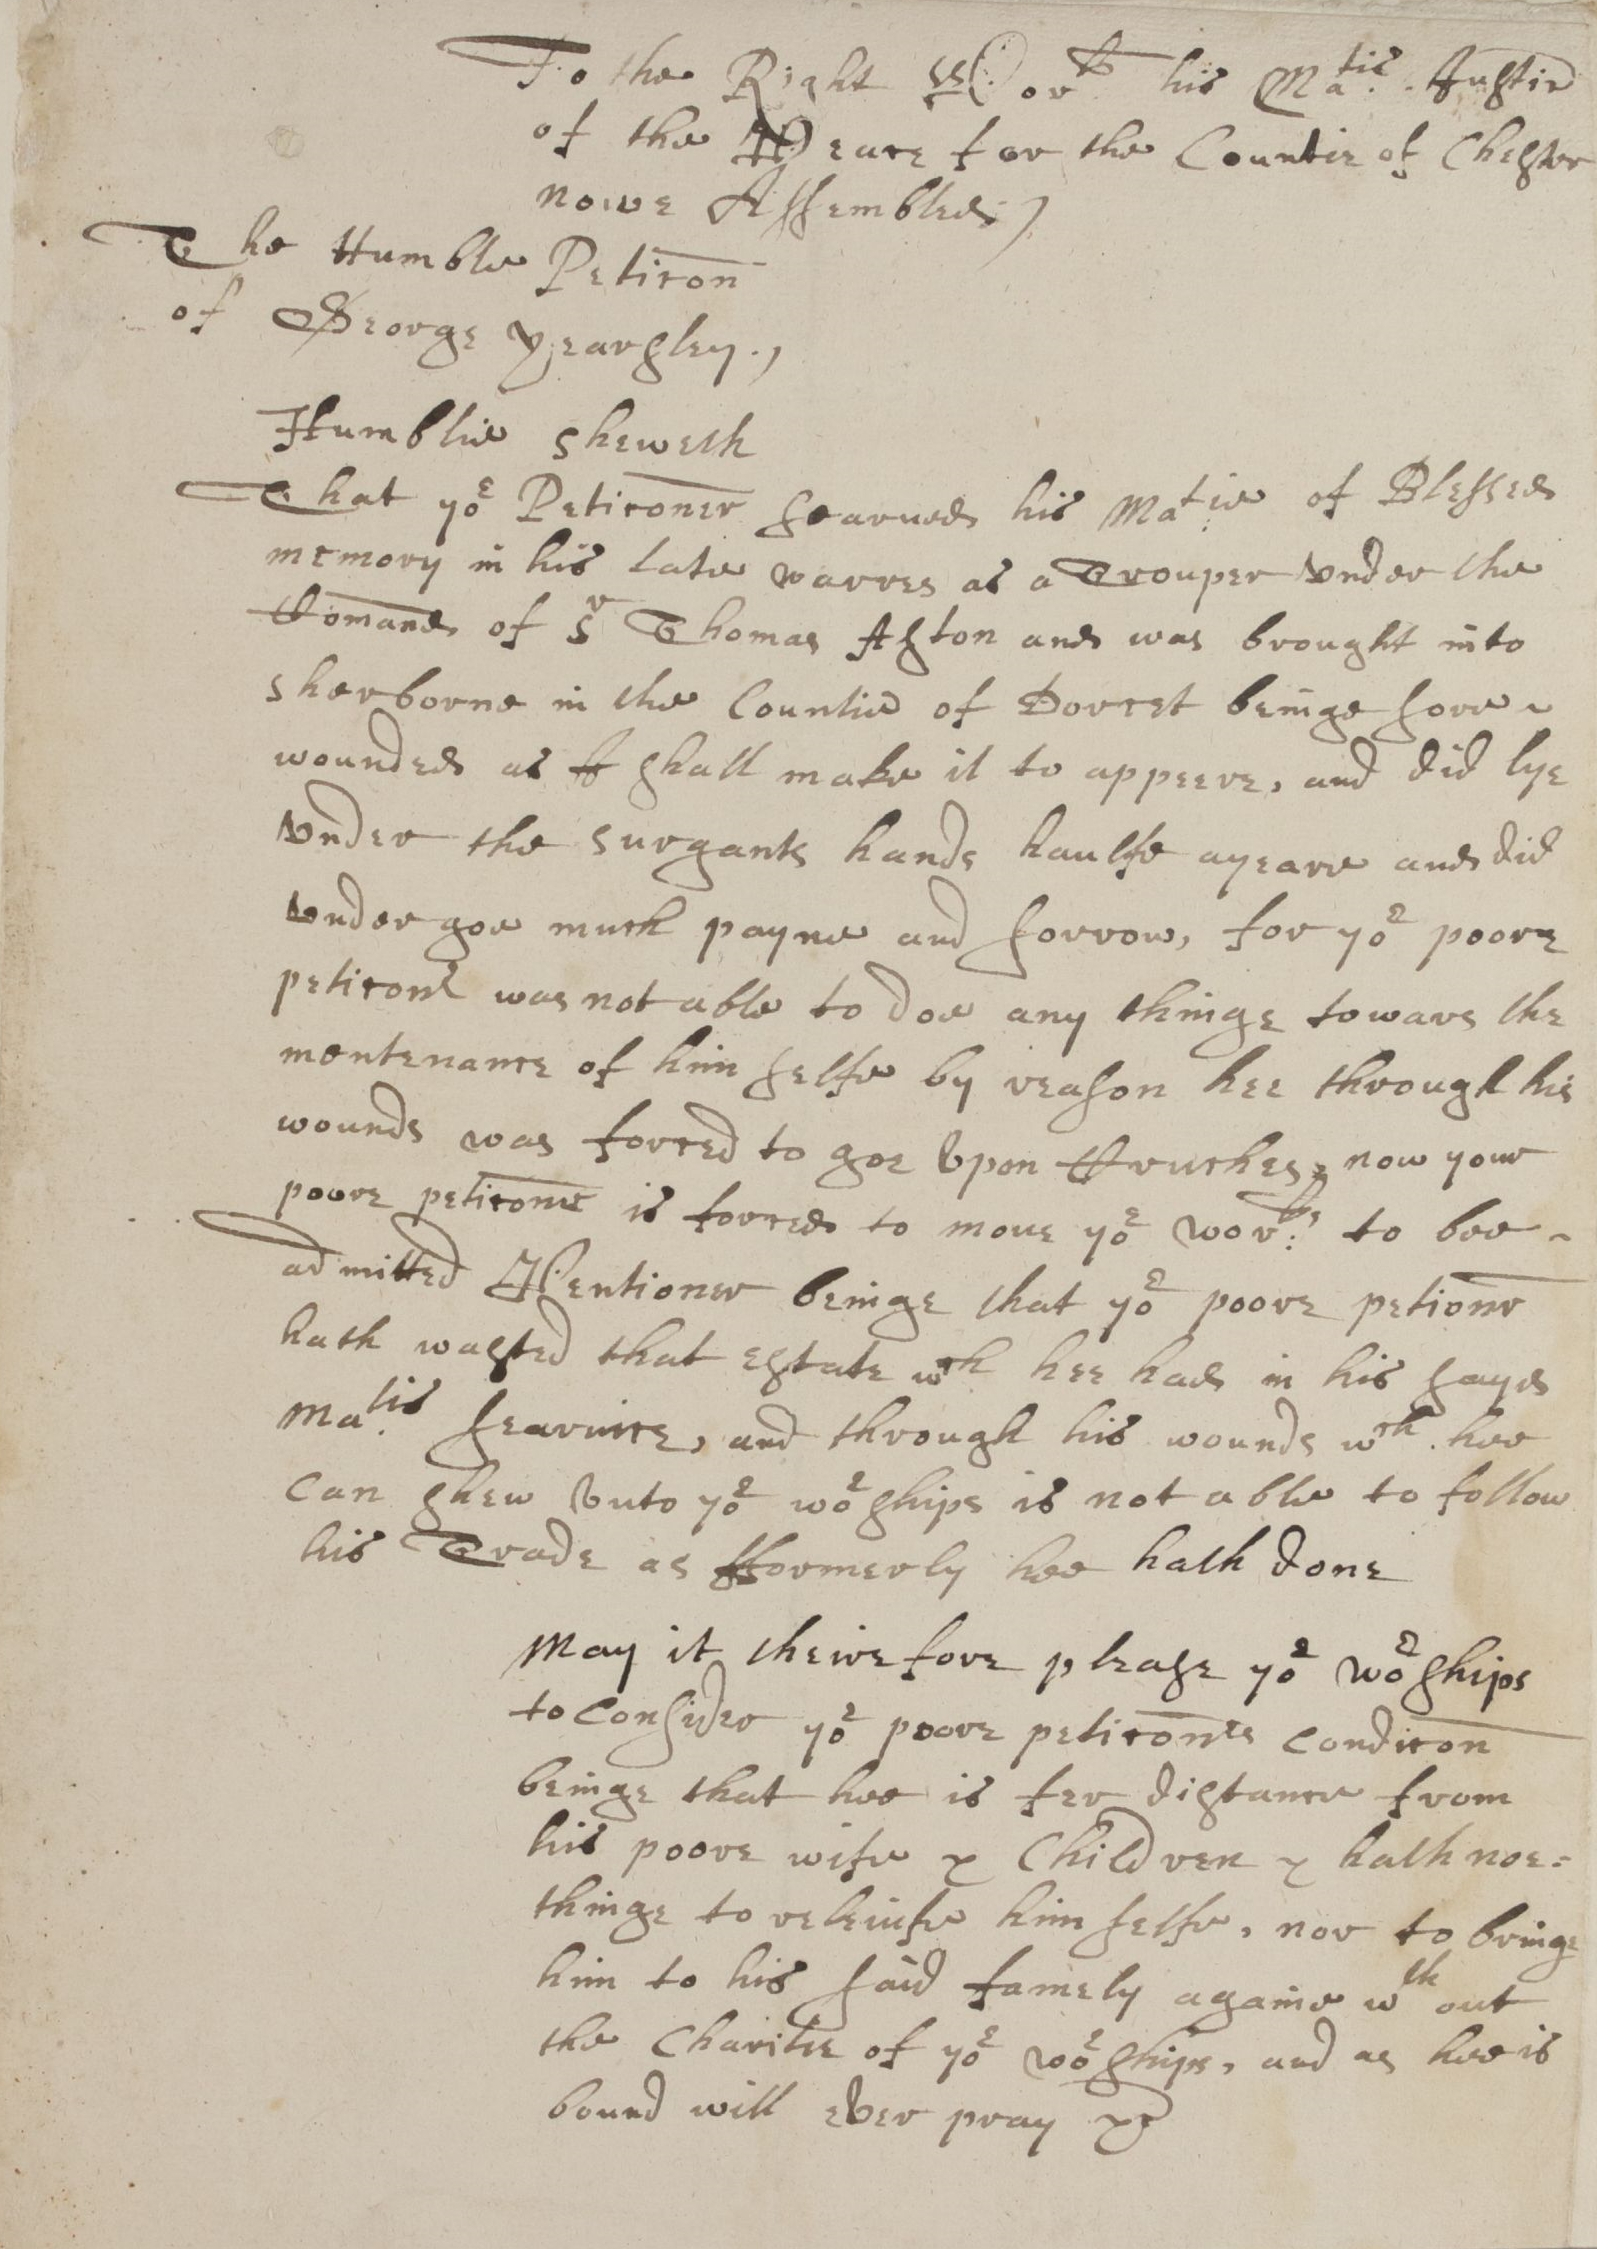 To the Right Worp his Matis. Justic
of the Peace for the Countie of Chester
nowe Assembled,
The Humble Peticon
of George Yearsley.,
Humblie sheweth
That yor Peticoner searued his Matie of Blessed
memory in his late warres as a Trouper vnder the
Comand of Sr Thomas Aston and was brought into
sherborne in the Countie of Dorcet beinge sore
wounded as I shall make it to appeere, and did lye
vnder the surgants hands haulfe ayeare and did
vnder goe much payne and sorrow, for yor poore
peticonr was not able to doe any thinge towars the
mentenance of him selfe by reason hee through his
wounds was forced to goe vpon Cruches, now your
poore peticoner is forced to moue yor worps: to bee
admitted Pentioner beinge that yor poore petionr
hath wasted that estate wch hee had in his sayd
Matis. searuice, and through his wounds wch hee
can shew vnto yor worships is not able to follow
his Trade as fformerly hee hath done
May it theirefore please yor worships
to Consider yor poore peticonrs Condicon
beinge that hee is fer distance from
his poore wife & Children & hath noe=
thinge to releiufe him selfe, nor to bringe
him to his said famely againe wth out
the Charitie of yor worships, and as hee is
bound will ever pray &c